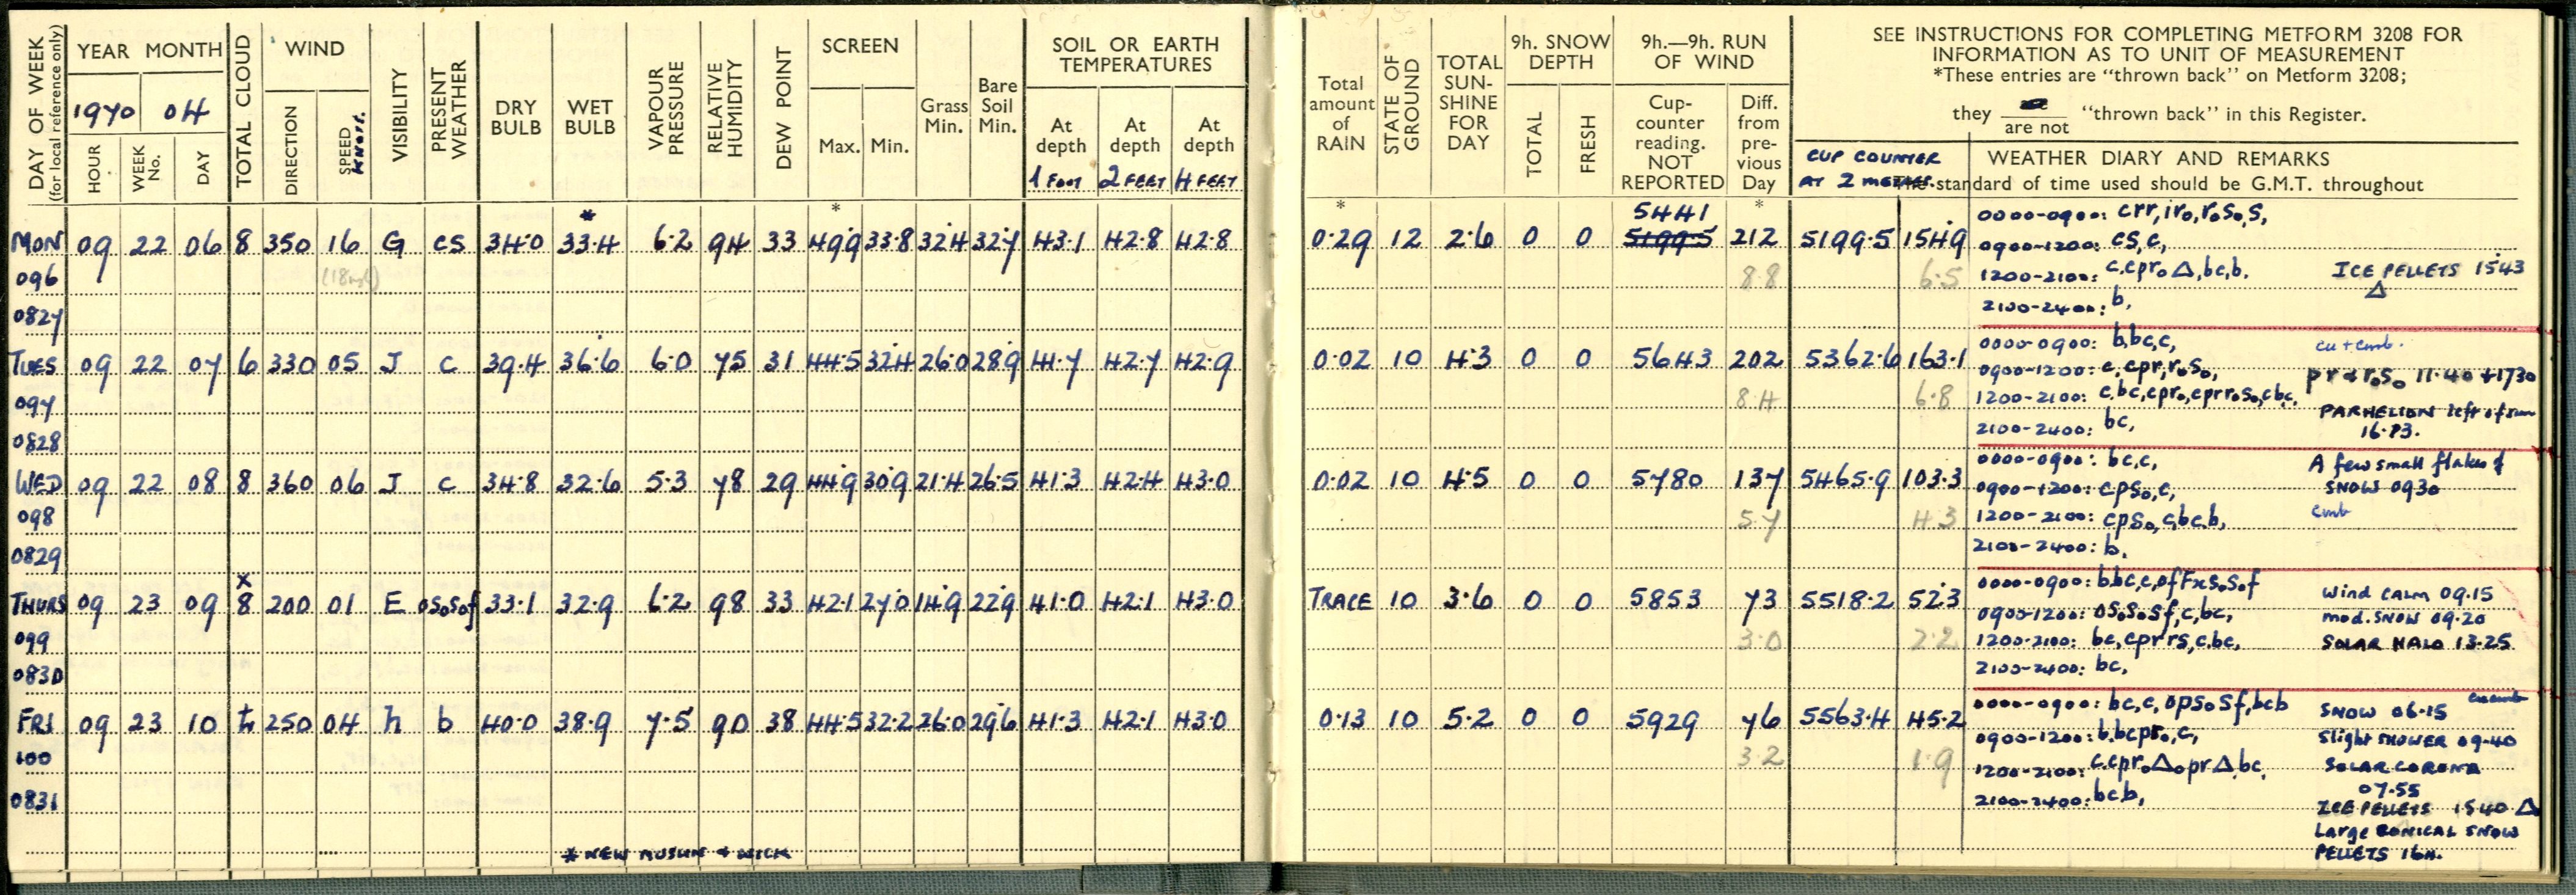 DAY OF WEEK (for local reference only)
YEAR MONTH
1970 04
HOUR WEEK No. DAY
TOTAL CLOUD
WIND
DIRECTION SPEED KNOTS.
VISIBILITY
PRESENT WEATHER
DRY BULB
WET BULB
VAPOUR PRESSURE
RELATIVE HUMIDITY
DEW POINT
SCREEN
Max. Min.
Grass Min.
Bare Soil Min.
SOIL OR EARTH TEMPERATURES
At depth 1 FOOT
At depth 2 FEET
At depth 4 FEET
Total amount of RAIN
STATE OF GROUND
TOTAL SUN-SHINE FOR DAY
9h. SNOW DEPTH
TOTAL FRESH
9h.—9h. RUN OF WIND
Cup-counter reading. NOT REPORTED
Diff. from pre-vious Day
SEE INSTRUCTIONS FOR COMPLETING METFORM 3208 FOR
INFORMATION AS TO UNIT OF MEASUREMENT
*These entries are "thrown back" on Metform 3208;
they are / are not "thrown back" in this Register.
CUP COUNTER
AT 2 METRES.
WEATHER DIARY AND REMARKS
The standard of time used should be G.M.T. throughout
* * * *
5441
MON 09 22 06 8 350 16 G cs 34·0 33·4 6·2 94 33 49·9 33·8 32·4 32·7 43·1 42·8 42·8 0·29 12 2·6 0 0 5199·5 212 5199·5 154·9
096 (18 8·8 6·5
0827
0000-0900: crr,iro,roSo,S,
0900-1200: cs,c,
1200-2100: c,cpro△,bc,b. ICE PELLETS 1543
△
2100-2400: b,
TUES 09 22 07 6 330 05 J c 39·4 36·6 6·0 75 31 44·5 32·4 26·0 28·9 41·7 42·7 42·9 0·02 10 4·3 0 0 5643 202 5362·6 163·1
097 8·4 6·8
0828
0000-0900: b,bc,c, cu + cmb.
0900-1200: c,cpr,roSo, pr & roSo 11·40 + 1730
1200-2100: c,bc,cpro,cprroSo,cbc, PARHELION left of sun
2100-2400: bc,
WED 09 22 08 8 360 06 J c 34·8 32·6 5·3 78 29 44·9 30·9 21·4 26·5 41·3 42·4 43·0 0·02 10 4·5 0 0 5780 137 5465·9 103·3
098 5·7 4·3
0829
0000-0900: bc,c, A few small flakes of
0900-1200: cpSo,c, SNOW 0930
1200-2100: cpSo,c,bc,b, cmb
2100-2400: b,
x
THURS 09 23 09 8 200 01 E oSoSof 33·1 32·9 6·2 98 33 42·1 27·0 14·9 22·9 41·0 42·1 43·0 TRACE 10 3·6 0 0 5853 73 5518·2 52·3
099 3·0 2·2
0830
0000-0900: b,bc,c,ofFxSoSof Wind CALM 09·15
0900-1200: oSoSoSf,c,bc, mod. SNOW 09·20
1200-2100: bc,cprrs,c,bc, SOLAR HALO 13·25
2100-2400: bc,
FRI 09 23 10 250 04 h b 40·0 38·9 7·5 90 38 44·5 32·2 26·0 29·6 41·3 42·1 43·0 0·13 10 5·2 0 0 5929 76 5563·4 45·2
100 3·2 1·9
0831
0000-0900: bc,c,opSoSf,bcb SNOW 06·15
0900-1200: b,bcpro,c, Slight SHOWER 09·40
1200-2100: c,cpro△opr△,bc, SOLAR CORONA
07·55
2100-2400: bcb, ICE PELLETS 1540 △
Large CONICAL SNOW
PELLETS 16H.
* NEW MUSLIN & WICK